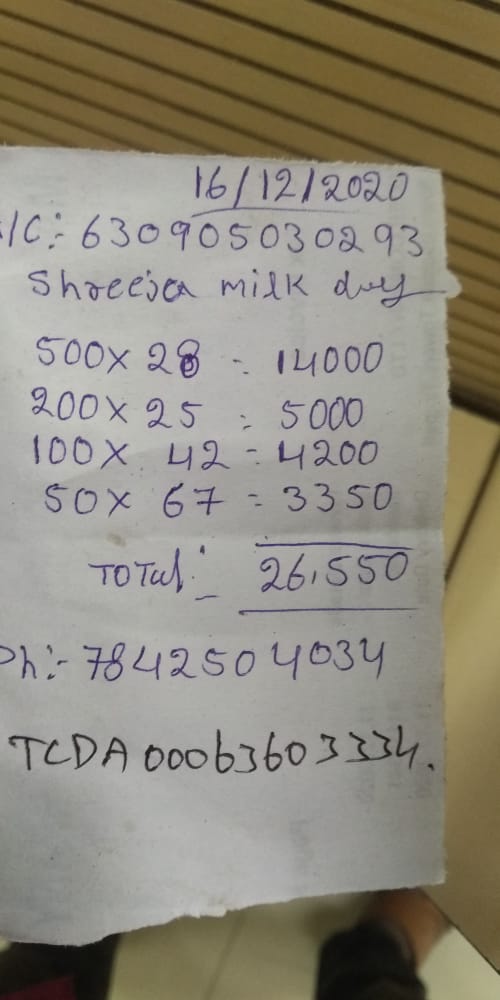 16/12/2020
/C:- 630905030293
Shreeja milk
500 x 28 = 14000
200 x 25 = 5000
100 x 42 = 4200
50 x 67 = 3350
Total:- 26,550
Ph:- 7842504034
TCDA00063603334.